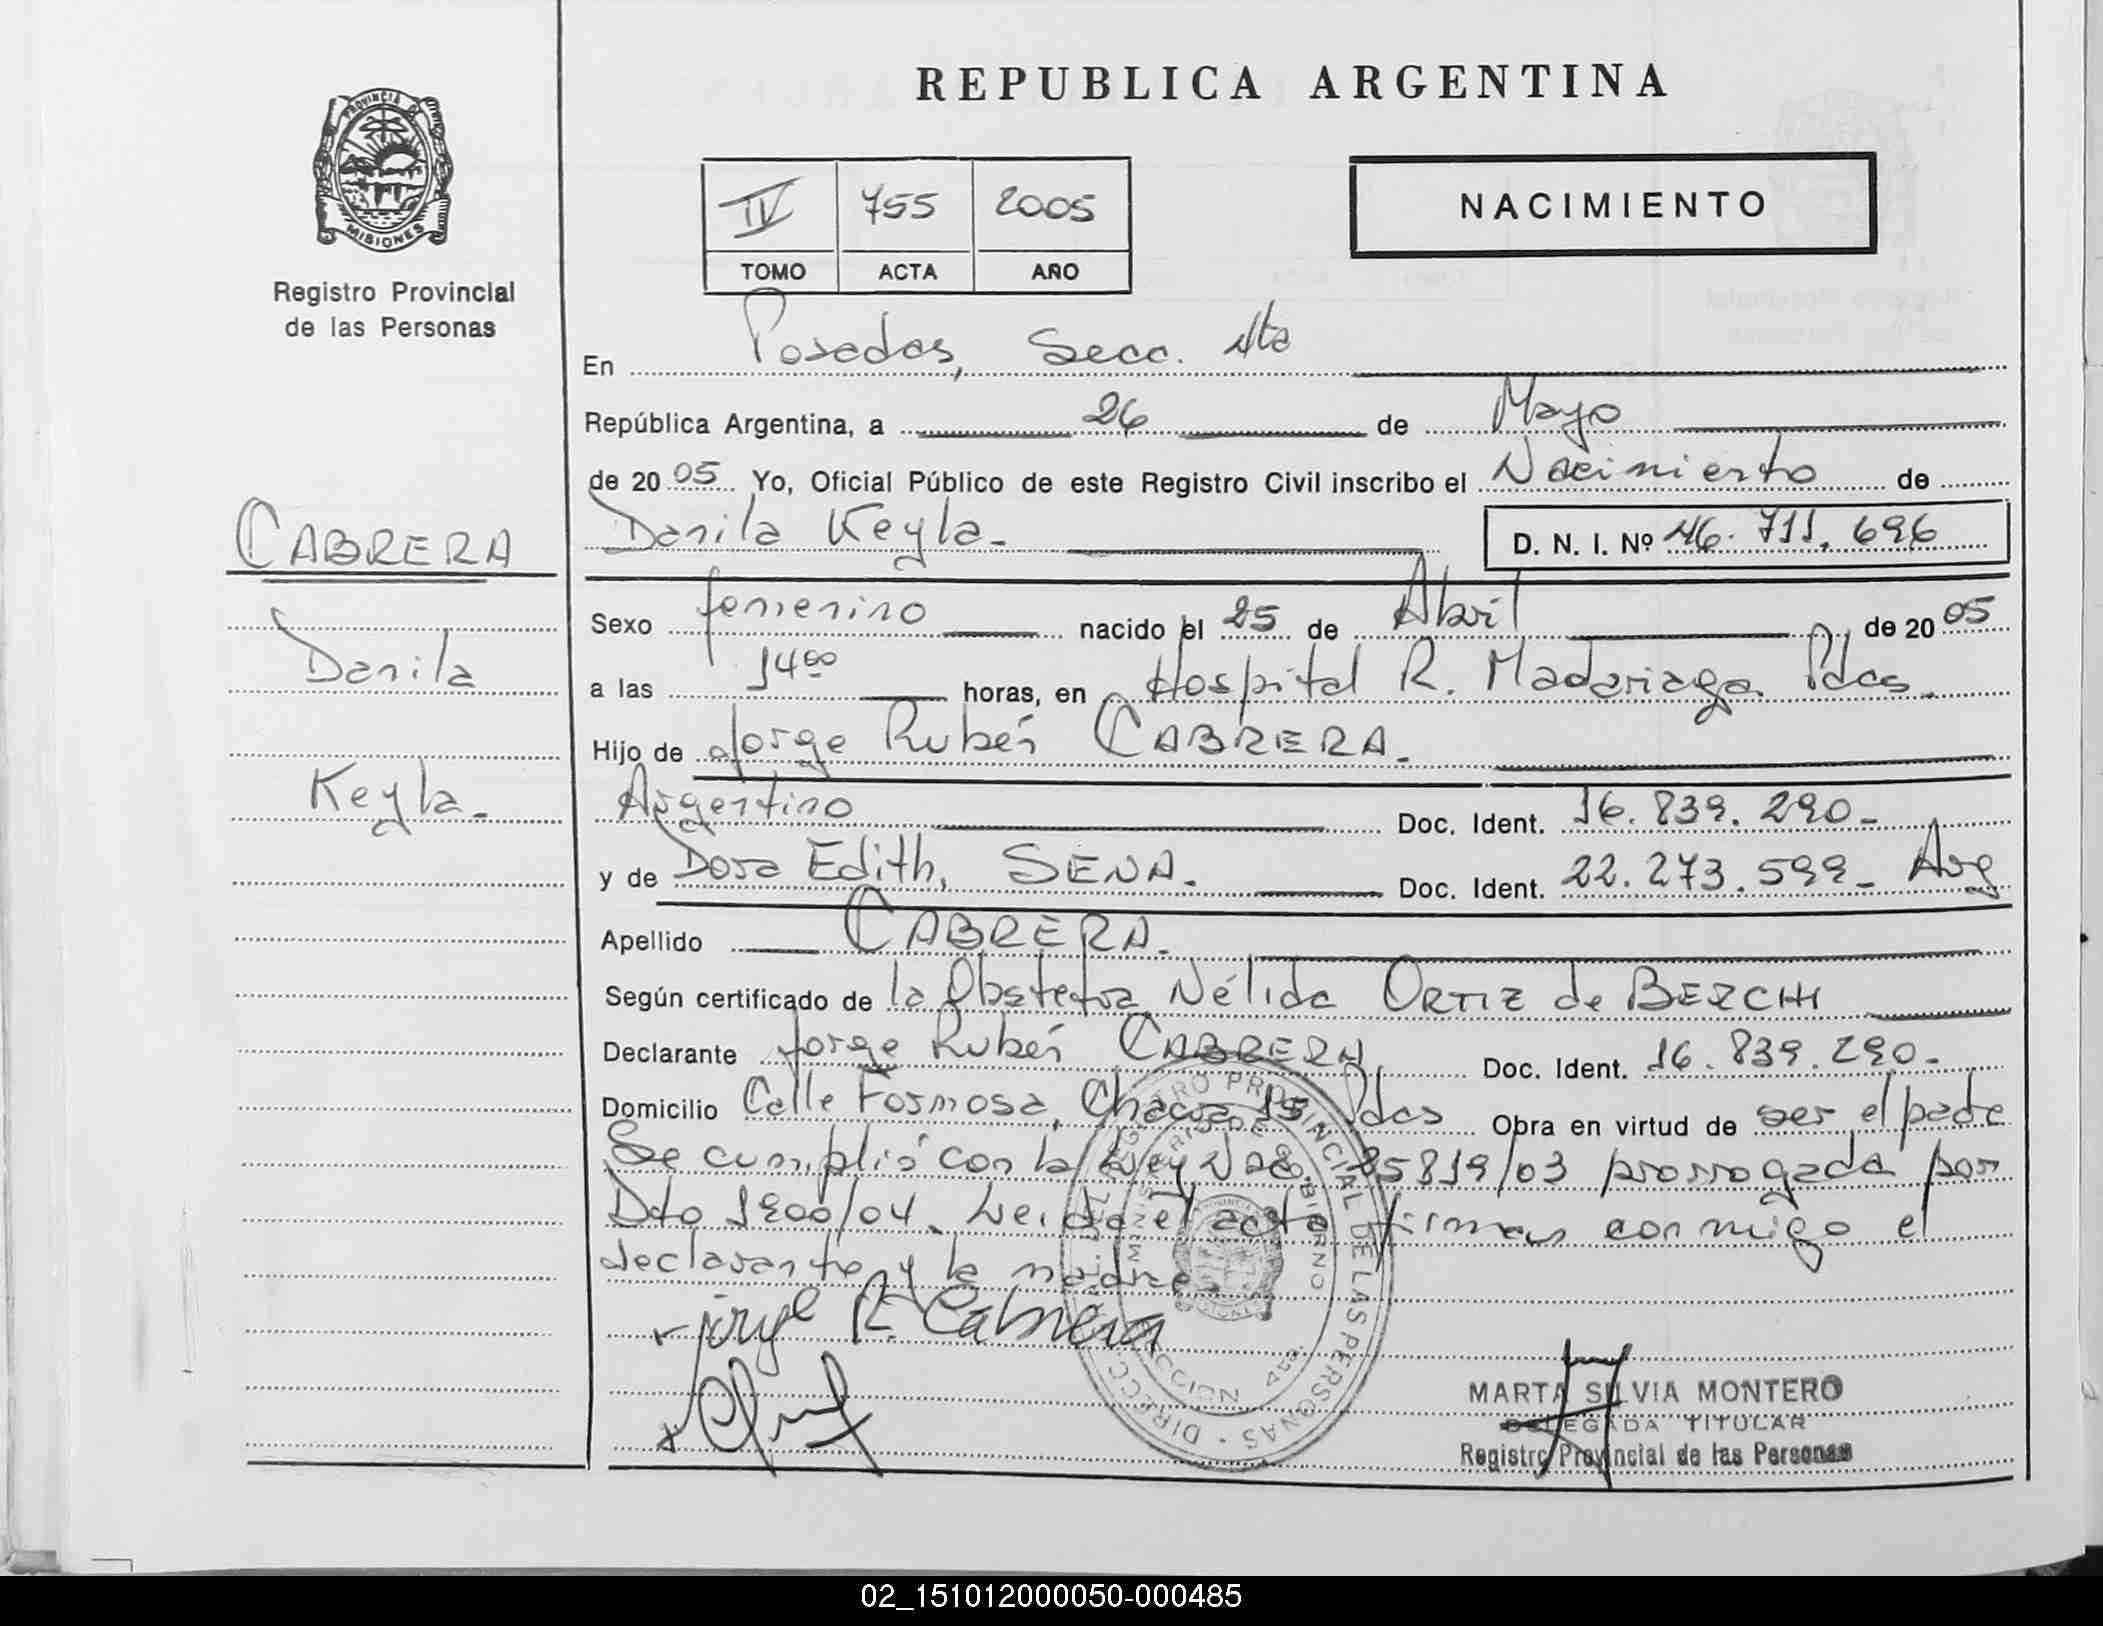 REPUBLICA ARGENTINA
PROVINCIA DE MISIONES
Registro Provincial
de las Personas
IV 755 2005
TOMO ACTA AÑO
NACIMIENTO
En Posadas, Secc. 4ta
República Argentina, a 26 de Mayo
de 2005 Yo, Oficial Público de este Registro Civil inscribo el Nacimiento de
Danila Keyla.- D. N. I. Nº 46.711.696
CABRERA
Danila
Keyla.-
Sexo femenino nacido el 25 de Abril de 2005
a las 14 00 horas, en Hospital R. Madariaga Pdas.
Hijo de Jorge Rubén CABRERA.-
Argentino Doc. Ident. 16.839.290.-
y de Dora Edith, SENA.- Doc. Ident. 22.273.599.- Arg
Apellido CABRERA.-
Según certificado de la Obstetra Nélida ORTIZ de BERCHI
Declarante Jorge Rubén CABRERA Doc. Ident. 16.839.290.-
Domicilio Calle Formosa, Chacra 15 Pdas Obra en virtud de ser el padre
Se cumplió con la Ley Nac. 25819/03 prorrogada por
Dto 1900/04. Leida el acta firman conmigo el
declarante y la madre.
Jorge R. Cabrera
DIRECC. DEL REGISTRO PROVINCIAL DE LAS PERSONAS
MINISTERIO DE GOBIERNO
MARTA SILVIA MONTERO
DELEGADA TITULAR
Registro Provincial de las Personas
02_151012000050-000485